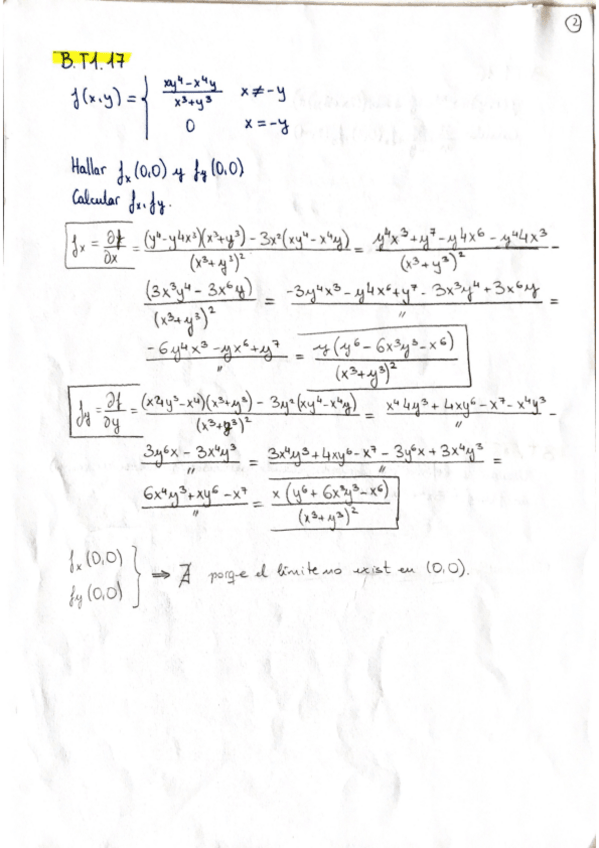 2
B.T1.17
f(x,y) = { xy⁴-x⁴y / x³+y³   x≠-y
0   x=-y
Hallar fx(0,0) y fy(0,0)
Calcular fx, fy.
fx = ∂f/∂x = (y⁴-y4x³)(x³+y³) - 3x²(xy⁴-x⁴y) / (x³+y³)² = y⁴x³+y⁷-y4x⁶-y⁴4x³ / (x³+y³)² -
(3x³y⁴ - 3x⁶y) / (x³+y³)² = -3y⁴x³-y4x⁶+y⁷-3x³y⁴+3x⁶y / " =
-6y⁴x³-yx⁶+y⁷ / " = y(y⁶-6x³y³-x⁶) / (x³+y³)²
fy = ∂f/∂y = (x4y³-x⁴)(x³+y³) - 3y²(xy⁴-x⁴y) / (x³+y³)² = x⁴4y³+4xy⁶-x⁷-x⁴y³ -
3y⁶x-3x⁴y³ / " = 3x⁴y³+4xy⁶-x⁷-3y⁶x+3x⁴y³ / " =
6x⁴y³+xy⁶-x⁷ / " = x(y⁶+6x³y³-x⁶) / (x³+y³)²
fx(0,0)
fy(0,0) } ⇒ ∄ porq-e el límite no exist en (0,0).